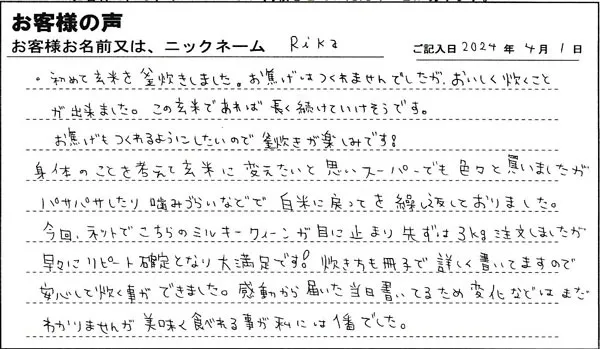 お客様の声
お客様お名前又は、ニックネーム Rika ご記入日 2024 年 4 月 1 日
・初めて玄米を釜炊きしました。お焦げはつくれませんでしたが、おいしく炊くこと
が出来ました。この玄米であれば長く続けていけそうです。
お焦げもつくれるようにしたいので釜炊きが楽しみです!
身体のことを考えて玄米に変えたいと思いスーパーでも色々と買いましたが
パサパサしたり噛みづらいなどで白米に戻ってを繰り返しておりました。
今回、ネットでこちらのミルキークィーンが目に止まり先ずは3kg注文しましたが
早々にリピート確定となり大満足です!炊き方も冊子で詳しく書いてますので
安心して炊く事ができました。感動から届いた当日書いてるため変化などはまだ
わかりませんが美味く食べれる事が私には1番でした。